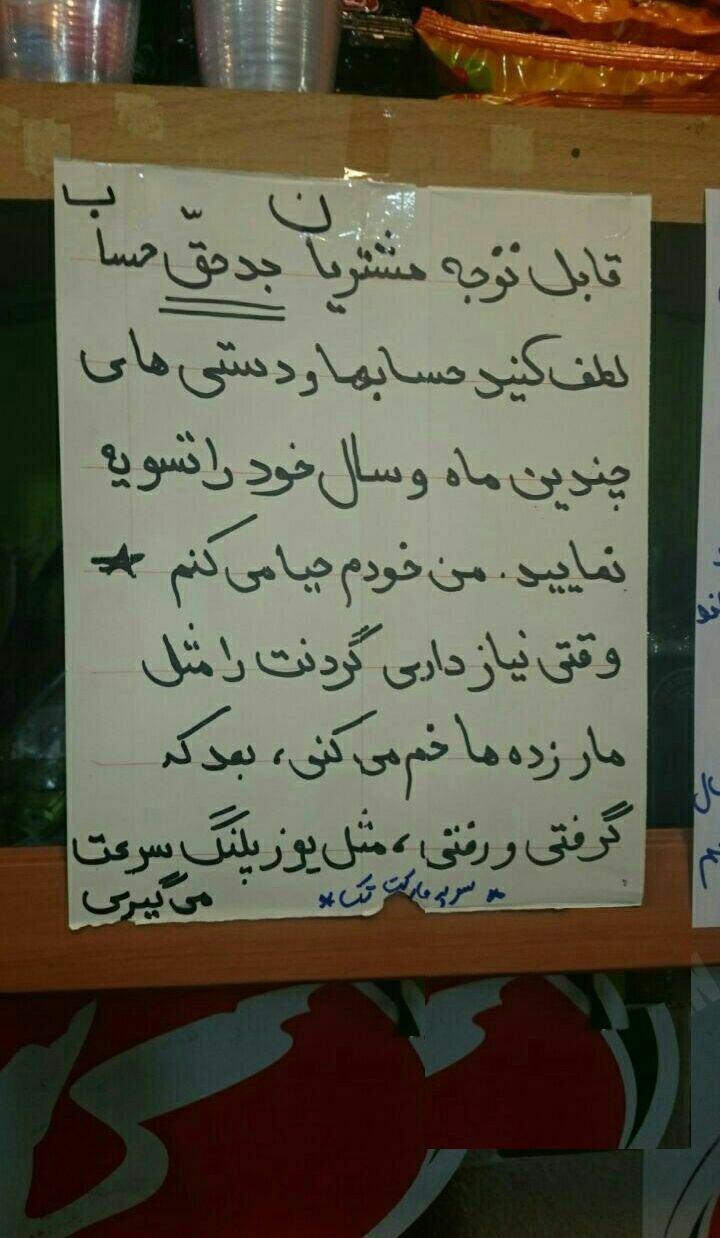 قابل توجه مشتریان بدحقّ حساب
لطف کنید حسابها و دستی های
چندین ماه و سال خود را تسویه
نمایید. من خودم حیا می کنم ★
وقتی نیاز داری گردنت را مثل
مار زده ها خم می کنی، بعد که
گرفتی و رفتی، مثل یوز پلنگ سرعت
می گیری
* سوپر مارکت تک *